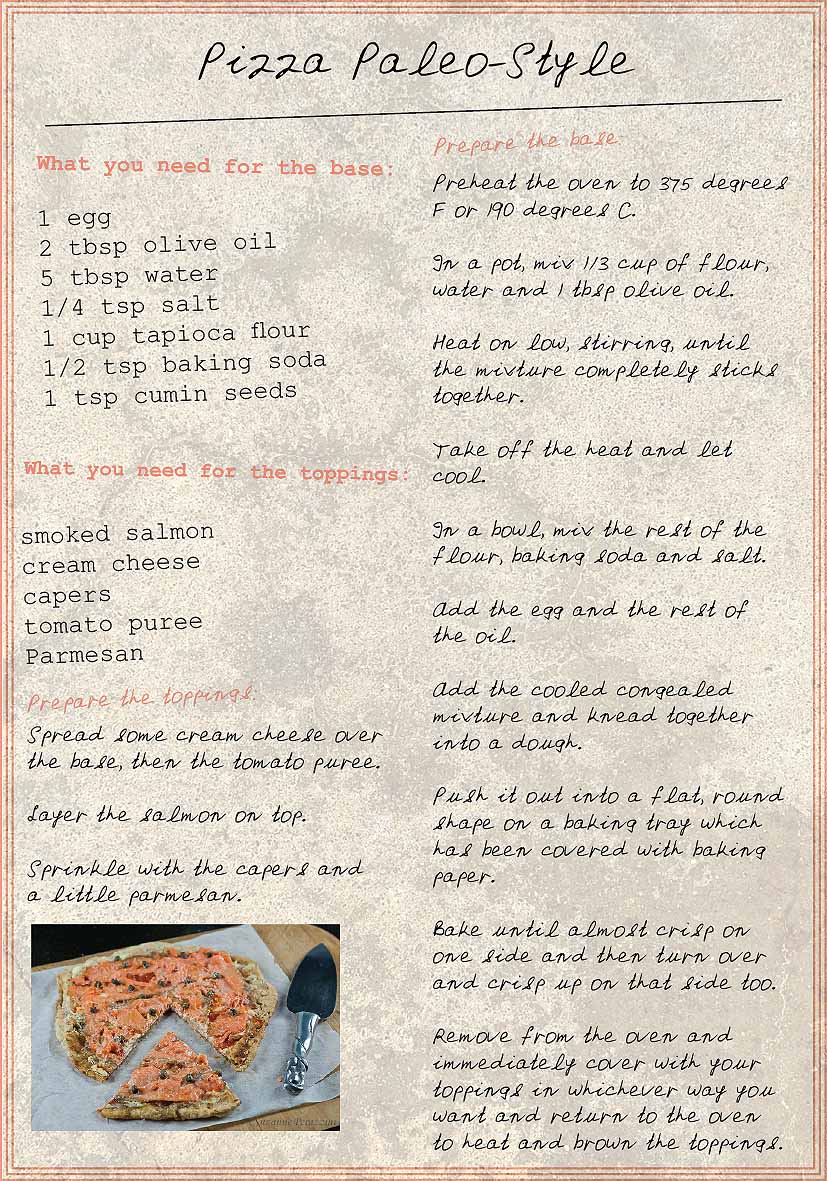 Pizza Paleo-Style
What you need for the base:
1 egg
2 tbsp olive oil
5 tbsp water
1/4 tsp salt
1 cup tapioca flour
1/2 tsp baking soda
1 tsp cumin seeds
What you need for the toppings:
smoked salmon
cream cheese
capers
tomato puree
Parmesan
Prepare the toppings:
Spread some cream cheese over
the base, then the tomato puree.
Layer the salmon on top.
Sprinkle with the capers and
a little parmesan.
Prepare the base
Preheat the oven to 375 degrees
F or 190 degrees C.
In a pot, mix 1/3 cup of flour,
water and 1 tbsp olive oil.
Heat on low, stirring, until
the mixture completely sticks
together.
Take off the heat and let
cool.
In a bowl, mix the rest of the
flour, baking soda and salt.
Add the egg and the rest of
the oil.
Add the cooled congealed
mixture and knead together
into a dough.
Push it out into a flat, round
shape on a baking tray which
has been covered with baking
paper.
Bake until almost crisp on
one side and then turn over
and crisp up on that side too.
Remove from the oven and
immediately cover with your
toppings in whichever way you
want and return to the oven
to heat and brown the toppings.